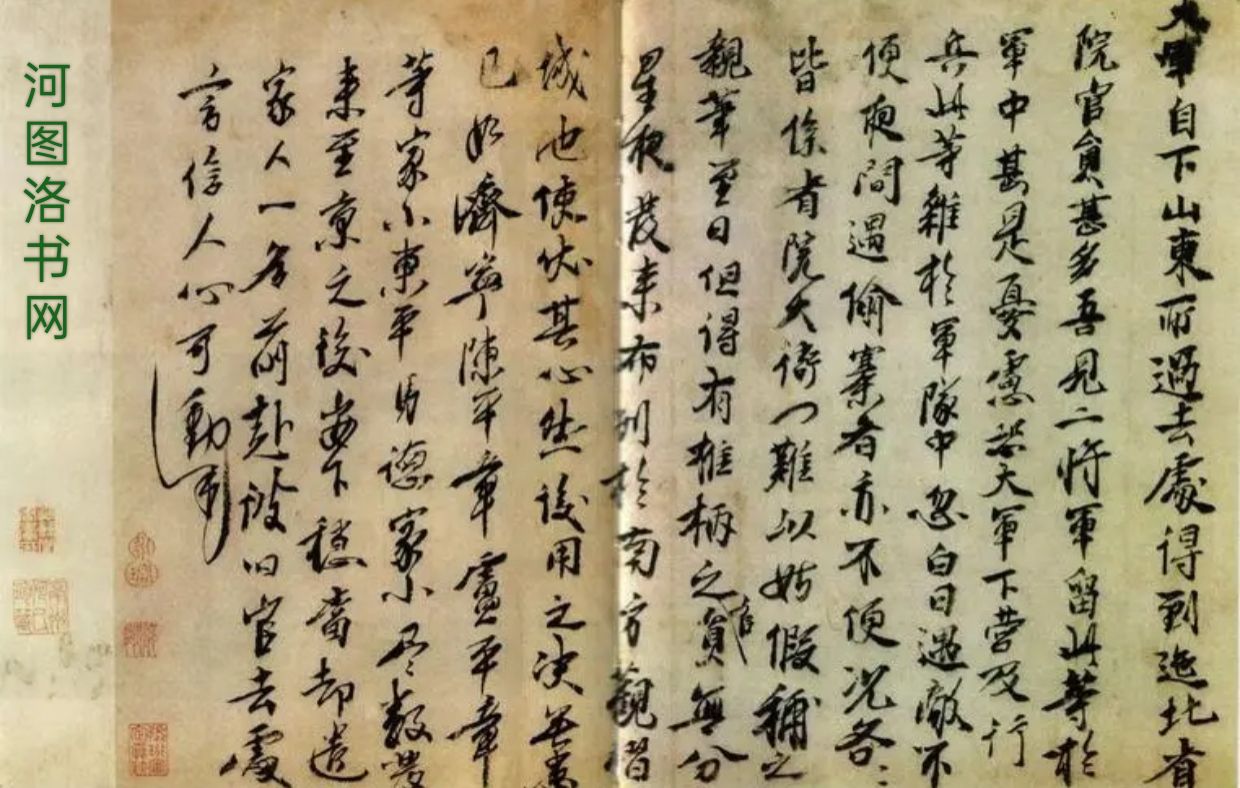 大軍自下山東所過去處得到迤北省
院官員甚多吾見二将軍留此等於
軍中甚是憂慮恐大軍下營及行
兵此等雜於軍隊中忽白日遇敵不
便夜間遇偷寨者亦不便況各〻
皆係省院大衙门難以姑假補之
親筆至日但得有椎柄之官員無分
星夜發来布列於南方觀習
城池使伏其心然後用之決無患
已如濟寧陳平章盧平章
等家小東平馬德家小尽数發
来至京之後安下穩當却遣
家人一名前赴彼旧官去處
言信人心可動
河图洛书网